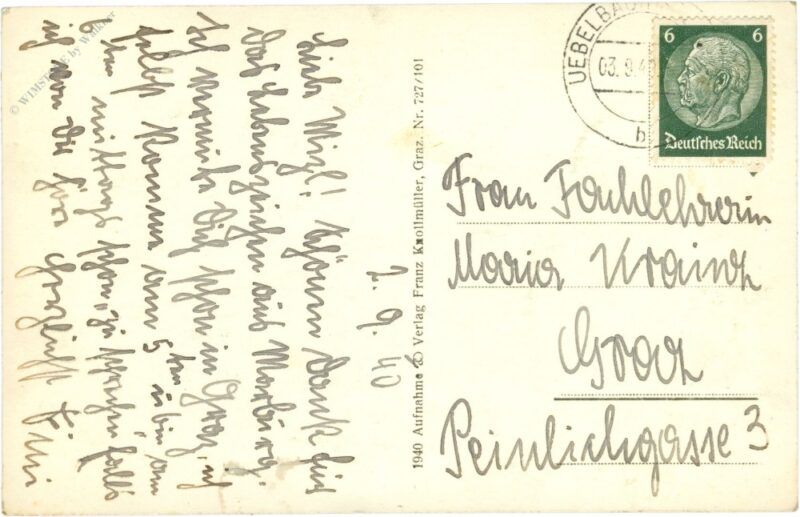 2. 9. 40
Liebe Mizl! Schönen Dank für
das Lebenszeichen aus Marburg.
Ich vermute Dich schon in Graz, ich
selbst komme am 5ten u bin am
6ten mittags schon "zu sprechen" falls
ich von Dir höre. Herzlichst Fini
1940 Aufnahme & Verlag Franz Knollmüller, Graz. Nr. 727/101
UEBELBA
03. 9. 40
b
6 6
Deutsches Reich
Frau Fachlehrerin
Maria Krainz
Graz
Peinlichgasse 3
© WIMSTORE by Walkner